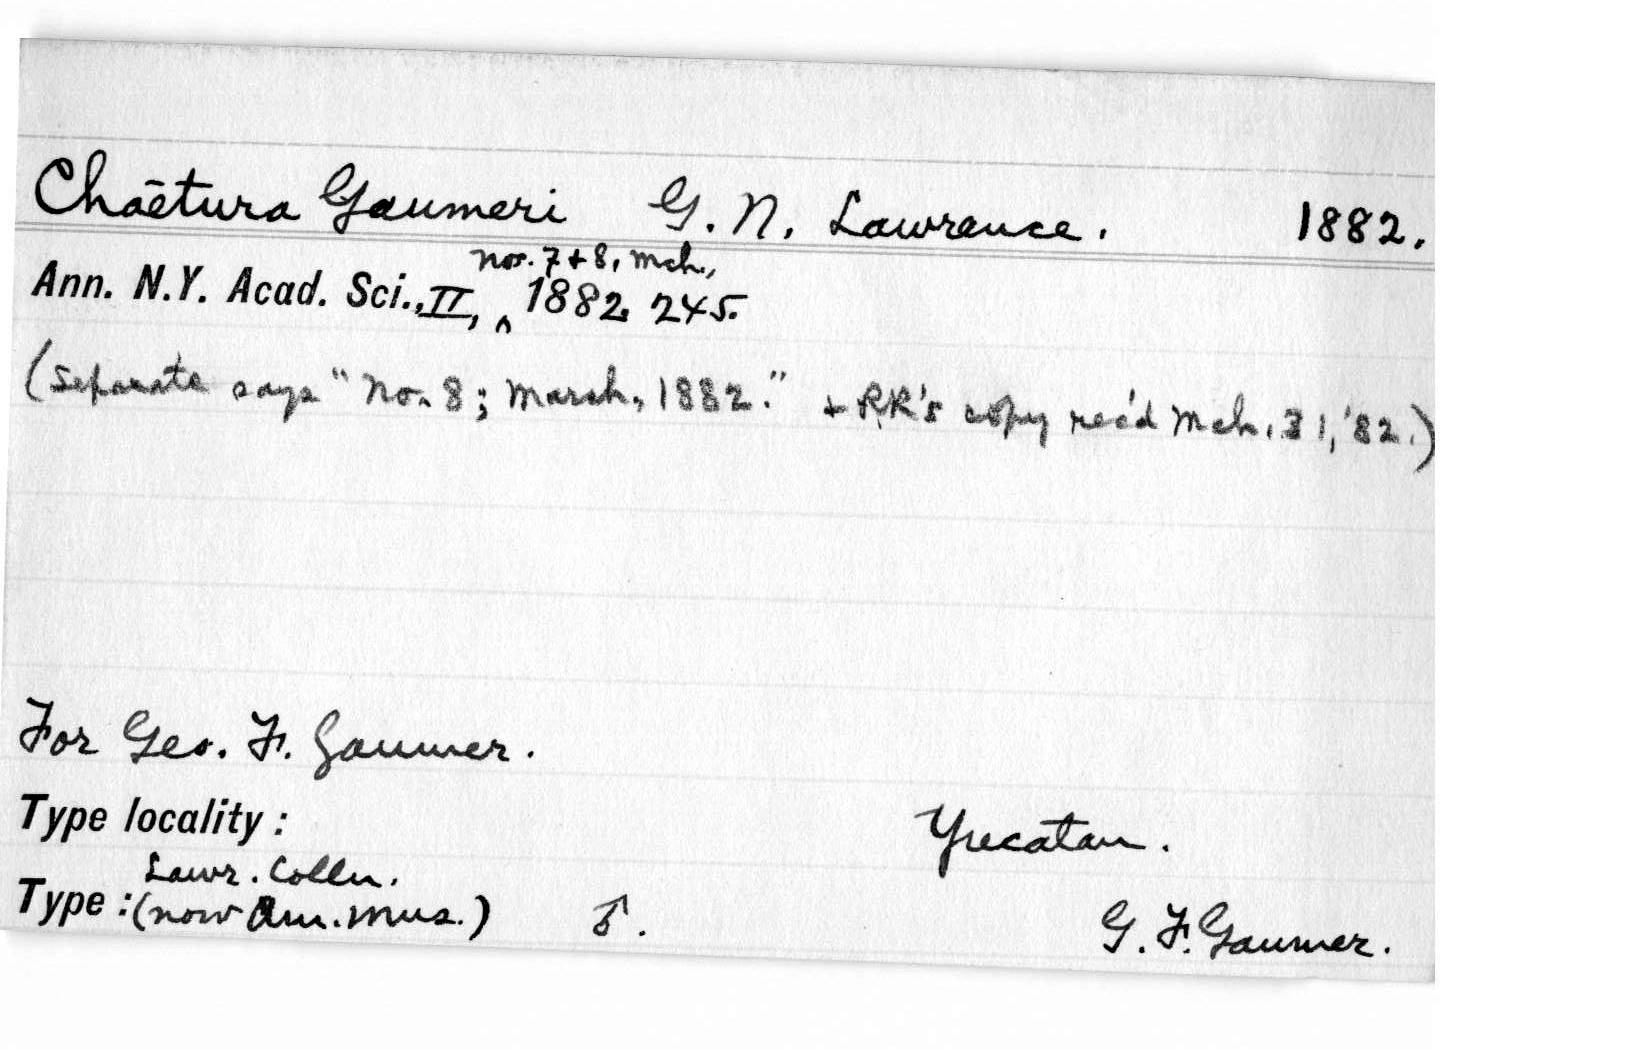 Chaētura Gaumeri G. N. Lawrence. 1882.
nos. 7 + 8, Mch.,
Ann. N.Y. Acad. Sci., II, ^ 1882, 245.
(Separate says "No. 8; March, 1882." + RR's copy rec'd Mch. 31, '82.)
For Geo. F. Gaumer.
Type locality: Yucatan.
Lawr. Colln.
Type: (now Am. Mus.) ♂. G. F. Gaumer.